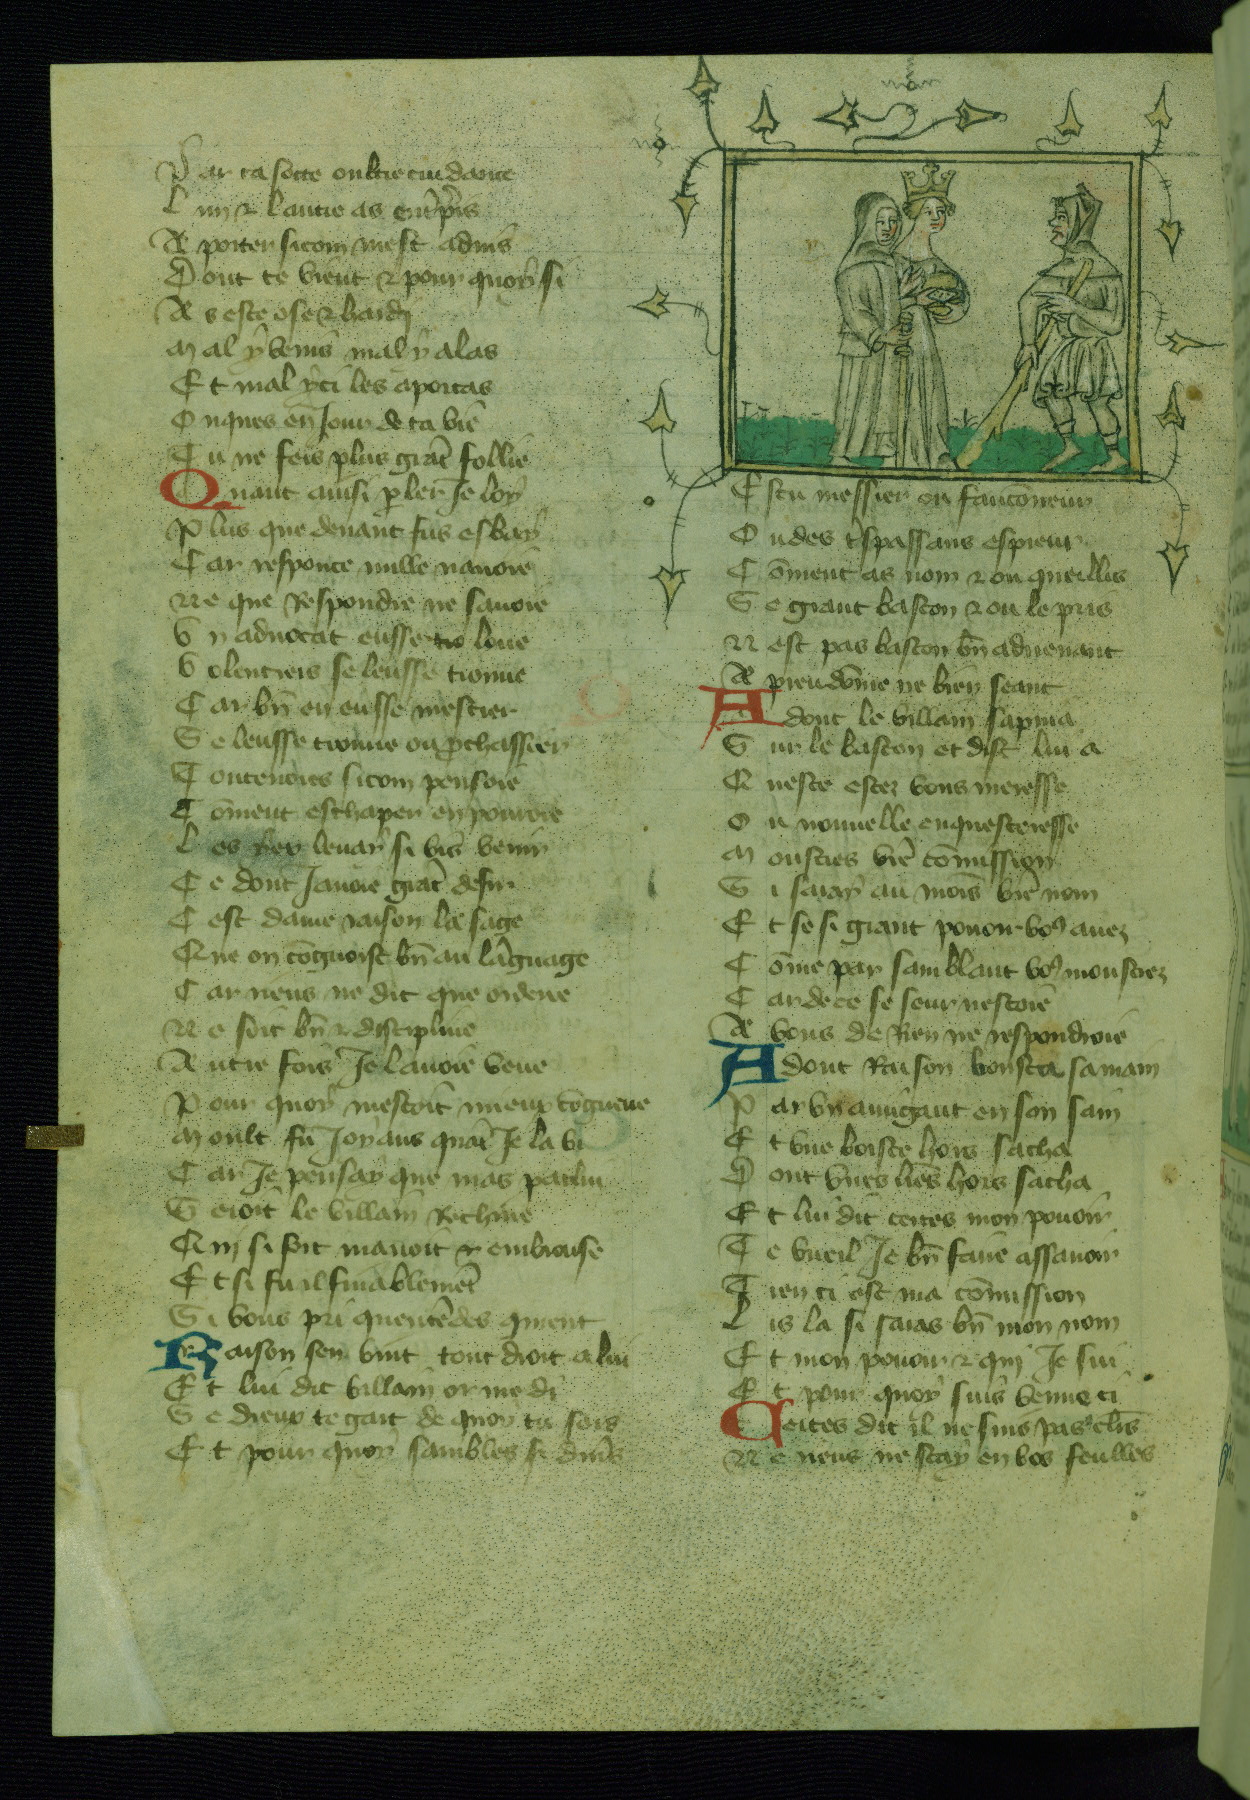 Par ta sotte oultrecuidance
L un z lautre as entrepris
A porter sicom mest aduis
Dont te vient z pour quoy si
As este ose z hardy
Mal y venis mal y alas
Et mal yci les aportas
Onques en Jour de ta vie
Tu ne feis plus grãt follie
Quant ainsi pler Je loy
Plus que deuant fus esbay
Car responce nulle nauoie
Ne que Respondre ne sauoie
Un aduocat eusse loue
Volentiers se leusse trouue
Car bñ en eusse mestier
Se leusse trouue ou pchassier
Contendis sicom pensoie
Cõment eschaper en pouroie
Les yex leuay si vis venir
Ce dont Jauoie grãt desir
Cest dame raison la sage
Que on cõgnoist bñ au lãguage
Car neus ne dit que ordene
Ne soit bñ z discipline
Autre fois Je lauoie veue
Pour quoy mestoit mieux cõgneue
Moult fu Joyans quãt Je la vi
Car Je pensay que mas parlui
Seroit le villain Rechine
Qui si fort mauoit
Et si fu il finablemẽt
Si vous pri quentẽdes qment
Raison sen vint tout droit a lui
Et lui dit villain or me di
Se dieux te gart de quoy tu sers
Et pour quoy sambles si diuers
Es tu messier ou faucõneur
Ou des tspassans espieur
Cõment as nom z ou queillis
Se grant baston z ou le pris
Nest pas baston bñ aduenant
A preudõme ne bien seant
Adont le villain sapuia
Sur le baston et dist lui a
Queste estez vous meresse
Ou nouuelle enquesteresse
Monstres vre cõmission
Si saray au mois vre nom
Et se si grant pouoir vo9 auez
Cõme par samblant vo9 monstrez
Car de ce se seur nestoie
A vous de Rien ne respondroie
Adont Raison bouta sa main
Par vn amigaut en son sain
Et vne boiste hors sacha
Dont vnes lrẽs hors sacha
Et lui dit certes mon pouoir
Te vueil Je bñ faire assauoir
Tien ci est ma cõmission
Lis la si saras bñ mon nom
Et mon pouoir z qui Je sui
Et pour quoy suis venue ci
Certes dit il ne suis pas clrs
Ne neus ne scay en vos feulles